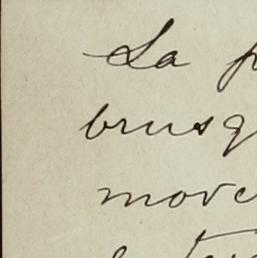 La p
brusq
move